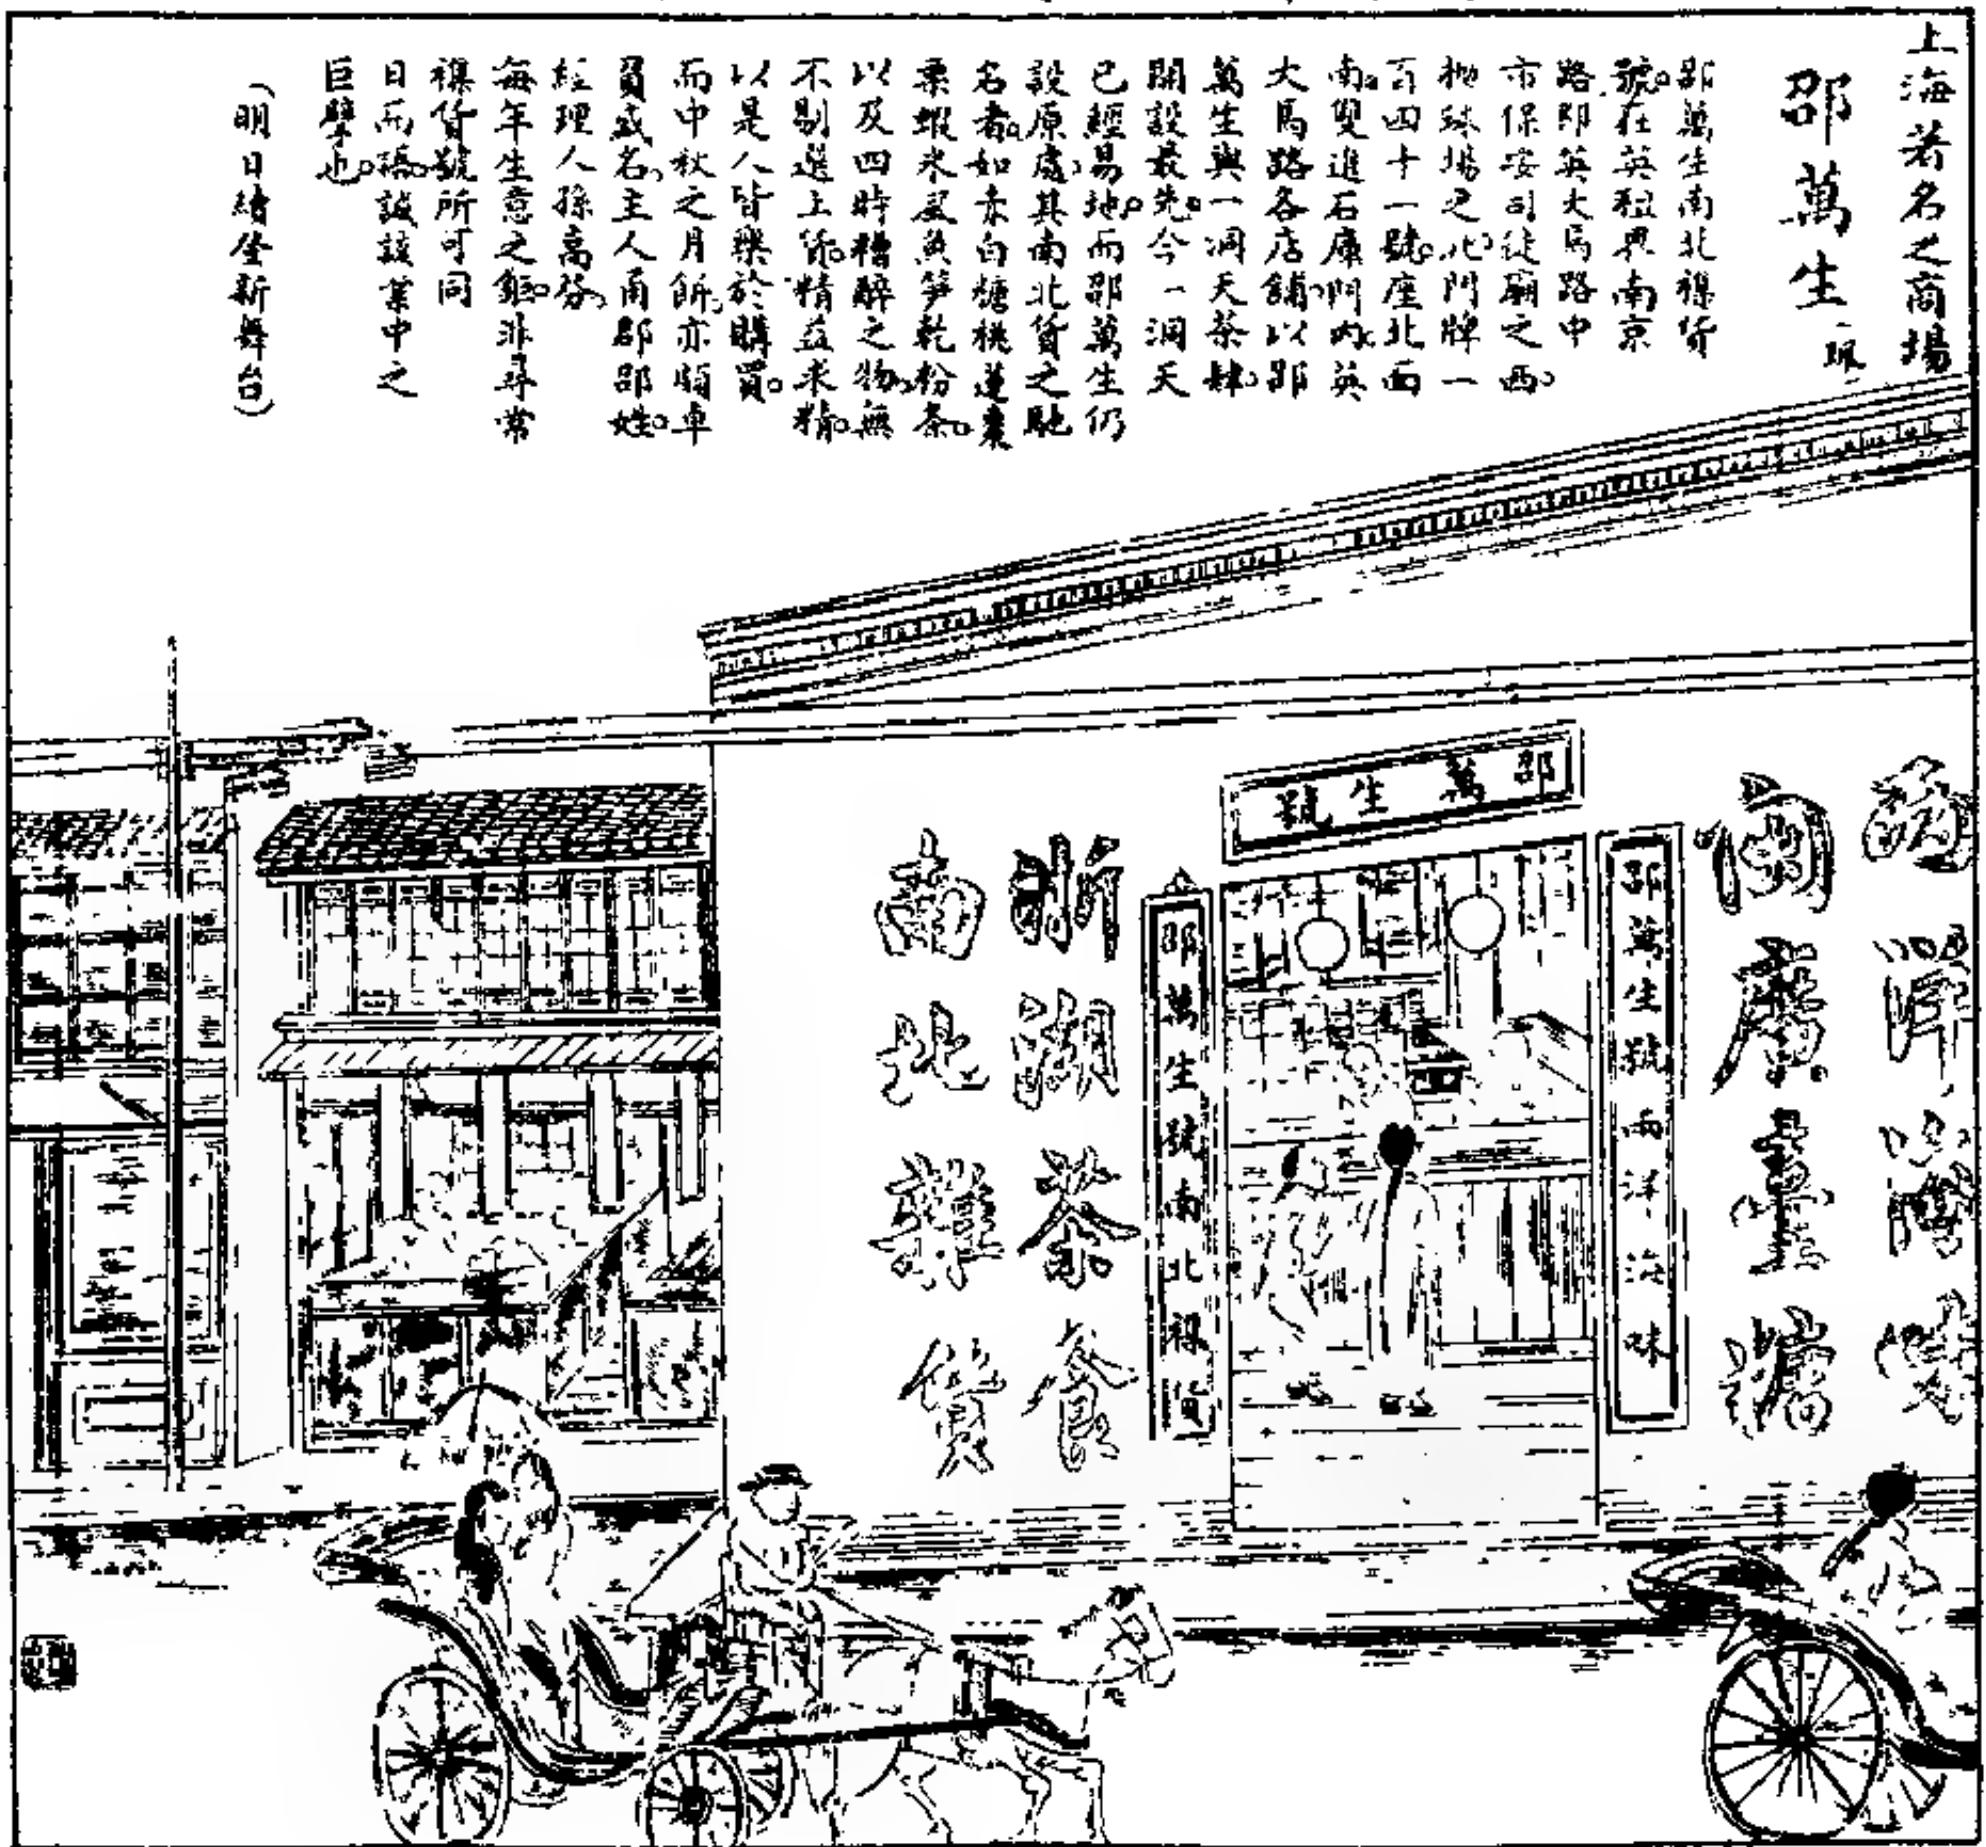 上海著名之商場
邵萬生
邵萬生南北襍貨
號。在英租界南京
路即英大馬路中
市保安司徒廟之西。
抛球場之北、門牌一
百四十一號。座北面
南。雙進石庫門內。英
大馬路各店舖以邵
萬生與一洞天茶肆。
開設最先。今一洞天
已經易地。而邵萬生仍
設原處、其南北貨之馳
名者。如赤白糖桃蓮棗
栗蝦米風魚笋乾粉条。
以及四時糟醉之物、無
不剔選上係。精益求精。
以是人皆樂於購買。
而中秋之月餅、亦頗卓
負盛名、主人甬郡邵姓。
經理人孫高芬、
每年生意之鉅。非尋常
襍貨號所可同
日而語。誠該業中之
巨擘也。
（明日續登新舞台）
邵萬生號
邵萬生號南洋海味
邵萬生號南北襍貨
洋海
廣
浙湖茶食
南北雜貨